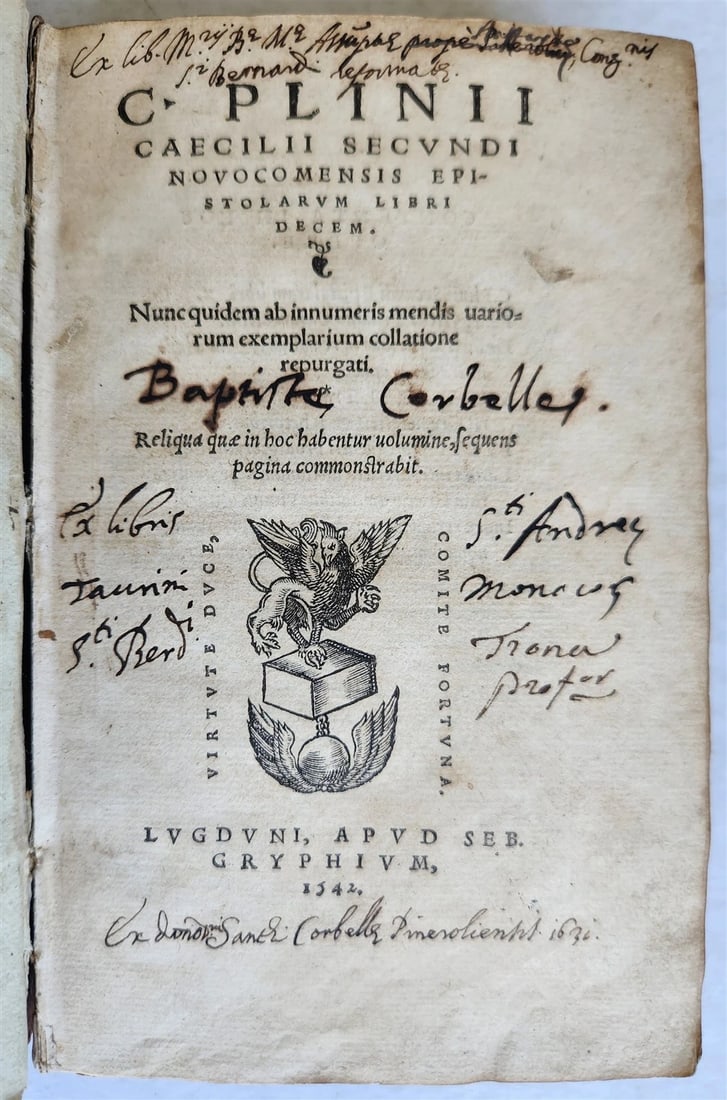 Ex lib. M.rij B.e M.e propè Cong.nis
S.ti Bernardi reformatae.
C. PLINII
CAECILII SECVNDI
NOVOCOMENSIS EPI-
STOLARVM LIBRI
DECEM.
Nunc quidem ab innumeris mendis uario-
rum exemplarium collatione
repurgati.
Baptiste Corbelle.
Reliqua quæ in hoc habentur uolumine, sequens
pagina commonstrabit.
Ex libris
Taurini
S.ti Berdi
VIRTVTE DVCE,
COMITE FORTVNA.
S.ti Andreę
Monacus
Profor
LVGDVNI, APVD SEB.
GRYPHIVM,
1542.
Ex Corbellę Pineroliensis 1631.